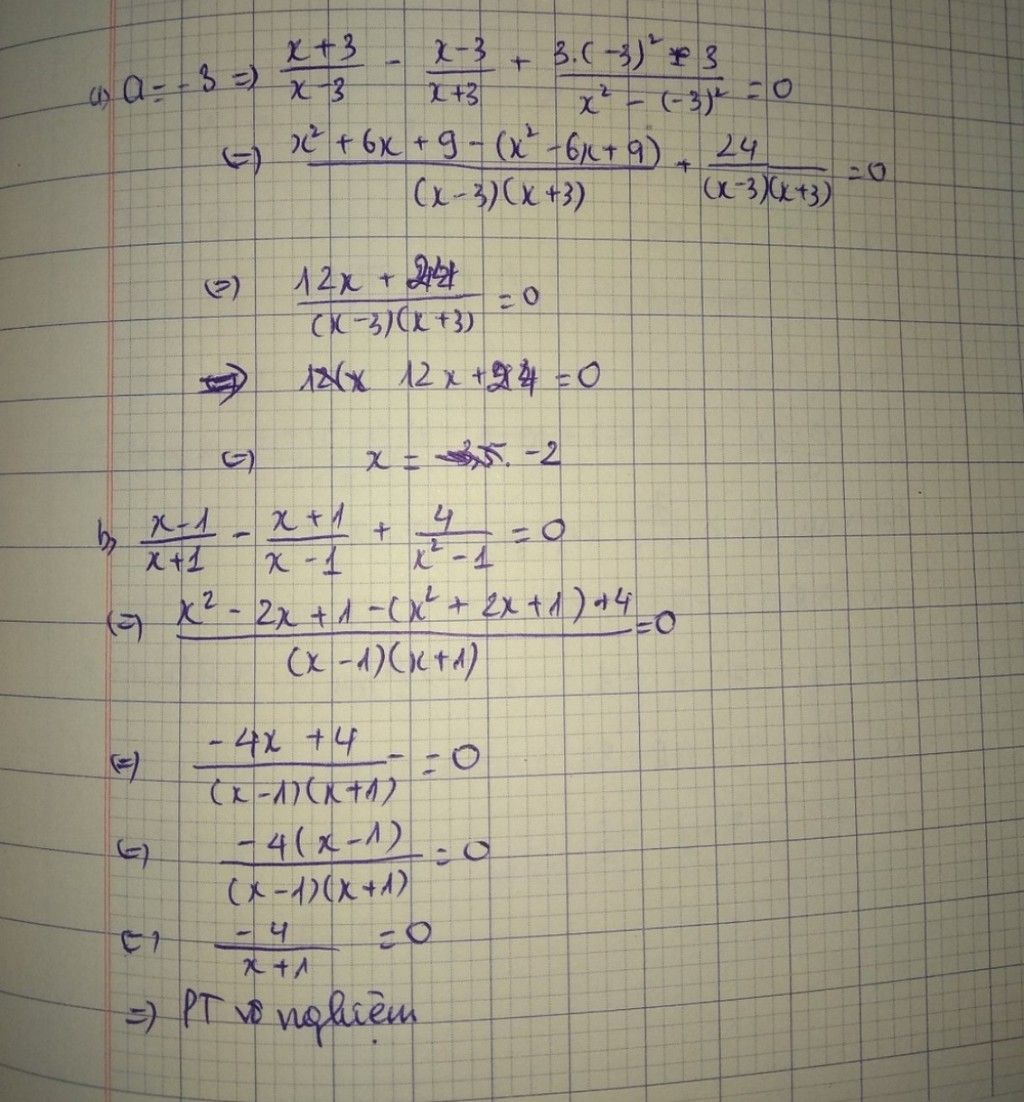 a) a = -3 => (x+3)/(x-3) - (x-3)/(x+3) + (3.(-3)² - 3)/(x² - (-3)²) = 0
(=) (x² + 6x + 9 - (x² - 6x + 9))/((x-3)(x+3)) + 24/((x-3)(x+3)) = 0
(=) (12x + 24)/((x-3)(x+3)) = 0
=> 12x + 24 = 0
(=) x = -2
b) (x-1)/(x+1) - (x+1)/(x-1) + 4/(x²-1) = 0
(=) (x² - 2x + 1 - (x² + 2x + 1) + 4)/((x-1)(x+1)) = 0
(=) (-4x + 4)/((x-1)(x+1)) = 0
(=) (-4(x-1))/((x-1)(x+1)) = 0
(=) (-4)/(x+1) = 0
=) PT vô nghiệm